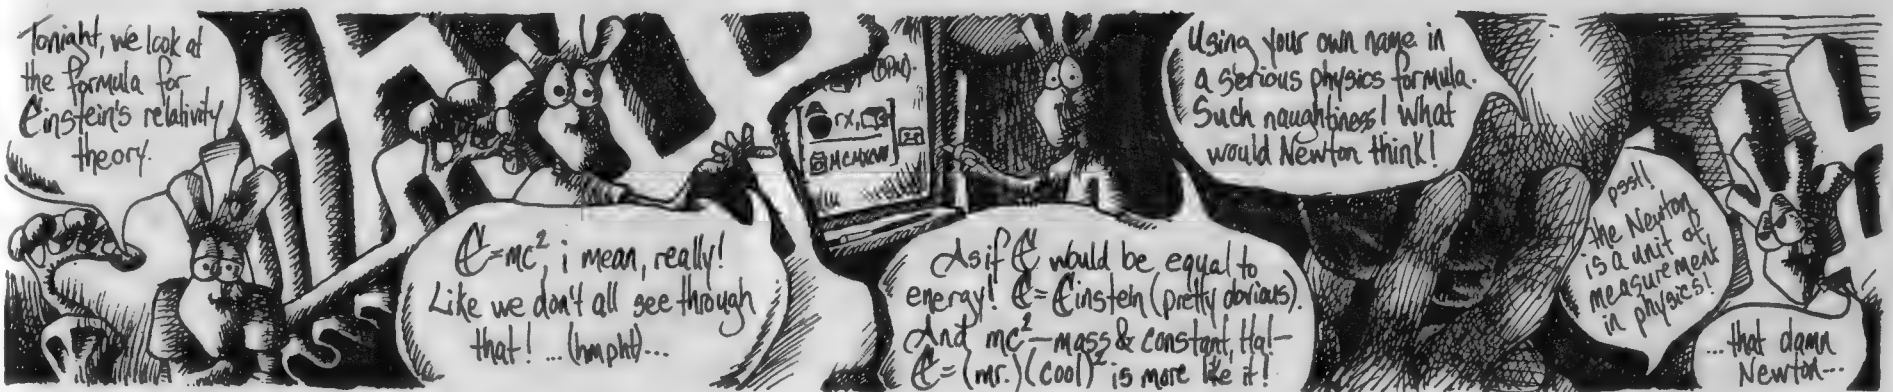 Tonight, we look at
the formula for
Einstein's relativity
theory.
E=mc², i mean, really!
Like we don't all see through
that! ...(hmpht)...
(BPM).
rx,
MCMXVII
As if E would be equal to
energy! E = Einstein (pretty obvious).
And mc² — mass & constant, Ha! —
E = (mr.)(cool)² is more like it!
Using your own name in
a serious physics formula.
Such naughtiness! What
would Newton think!
psst!
the Newton
is a unit of
measurement
in physics!
...that damn
Newton...